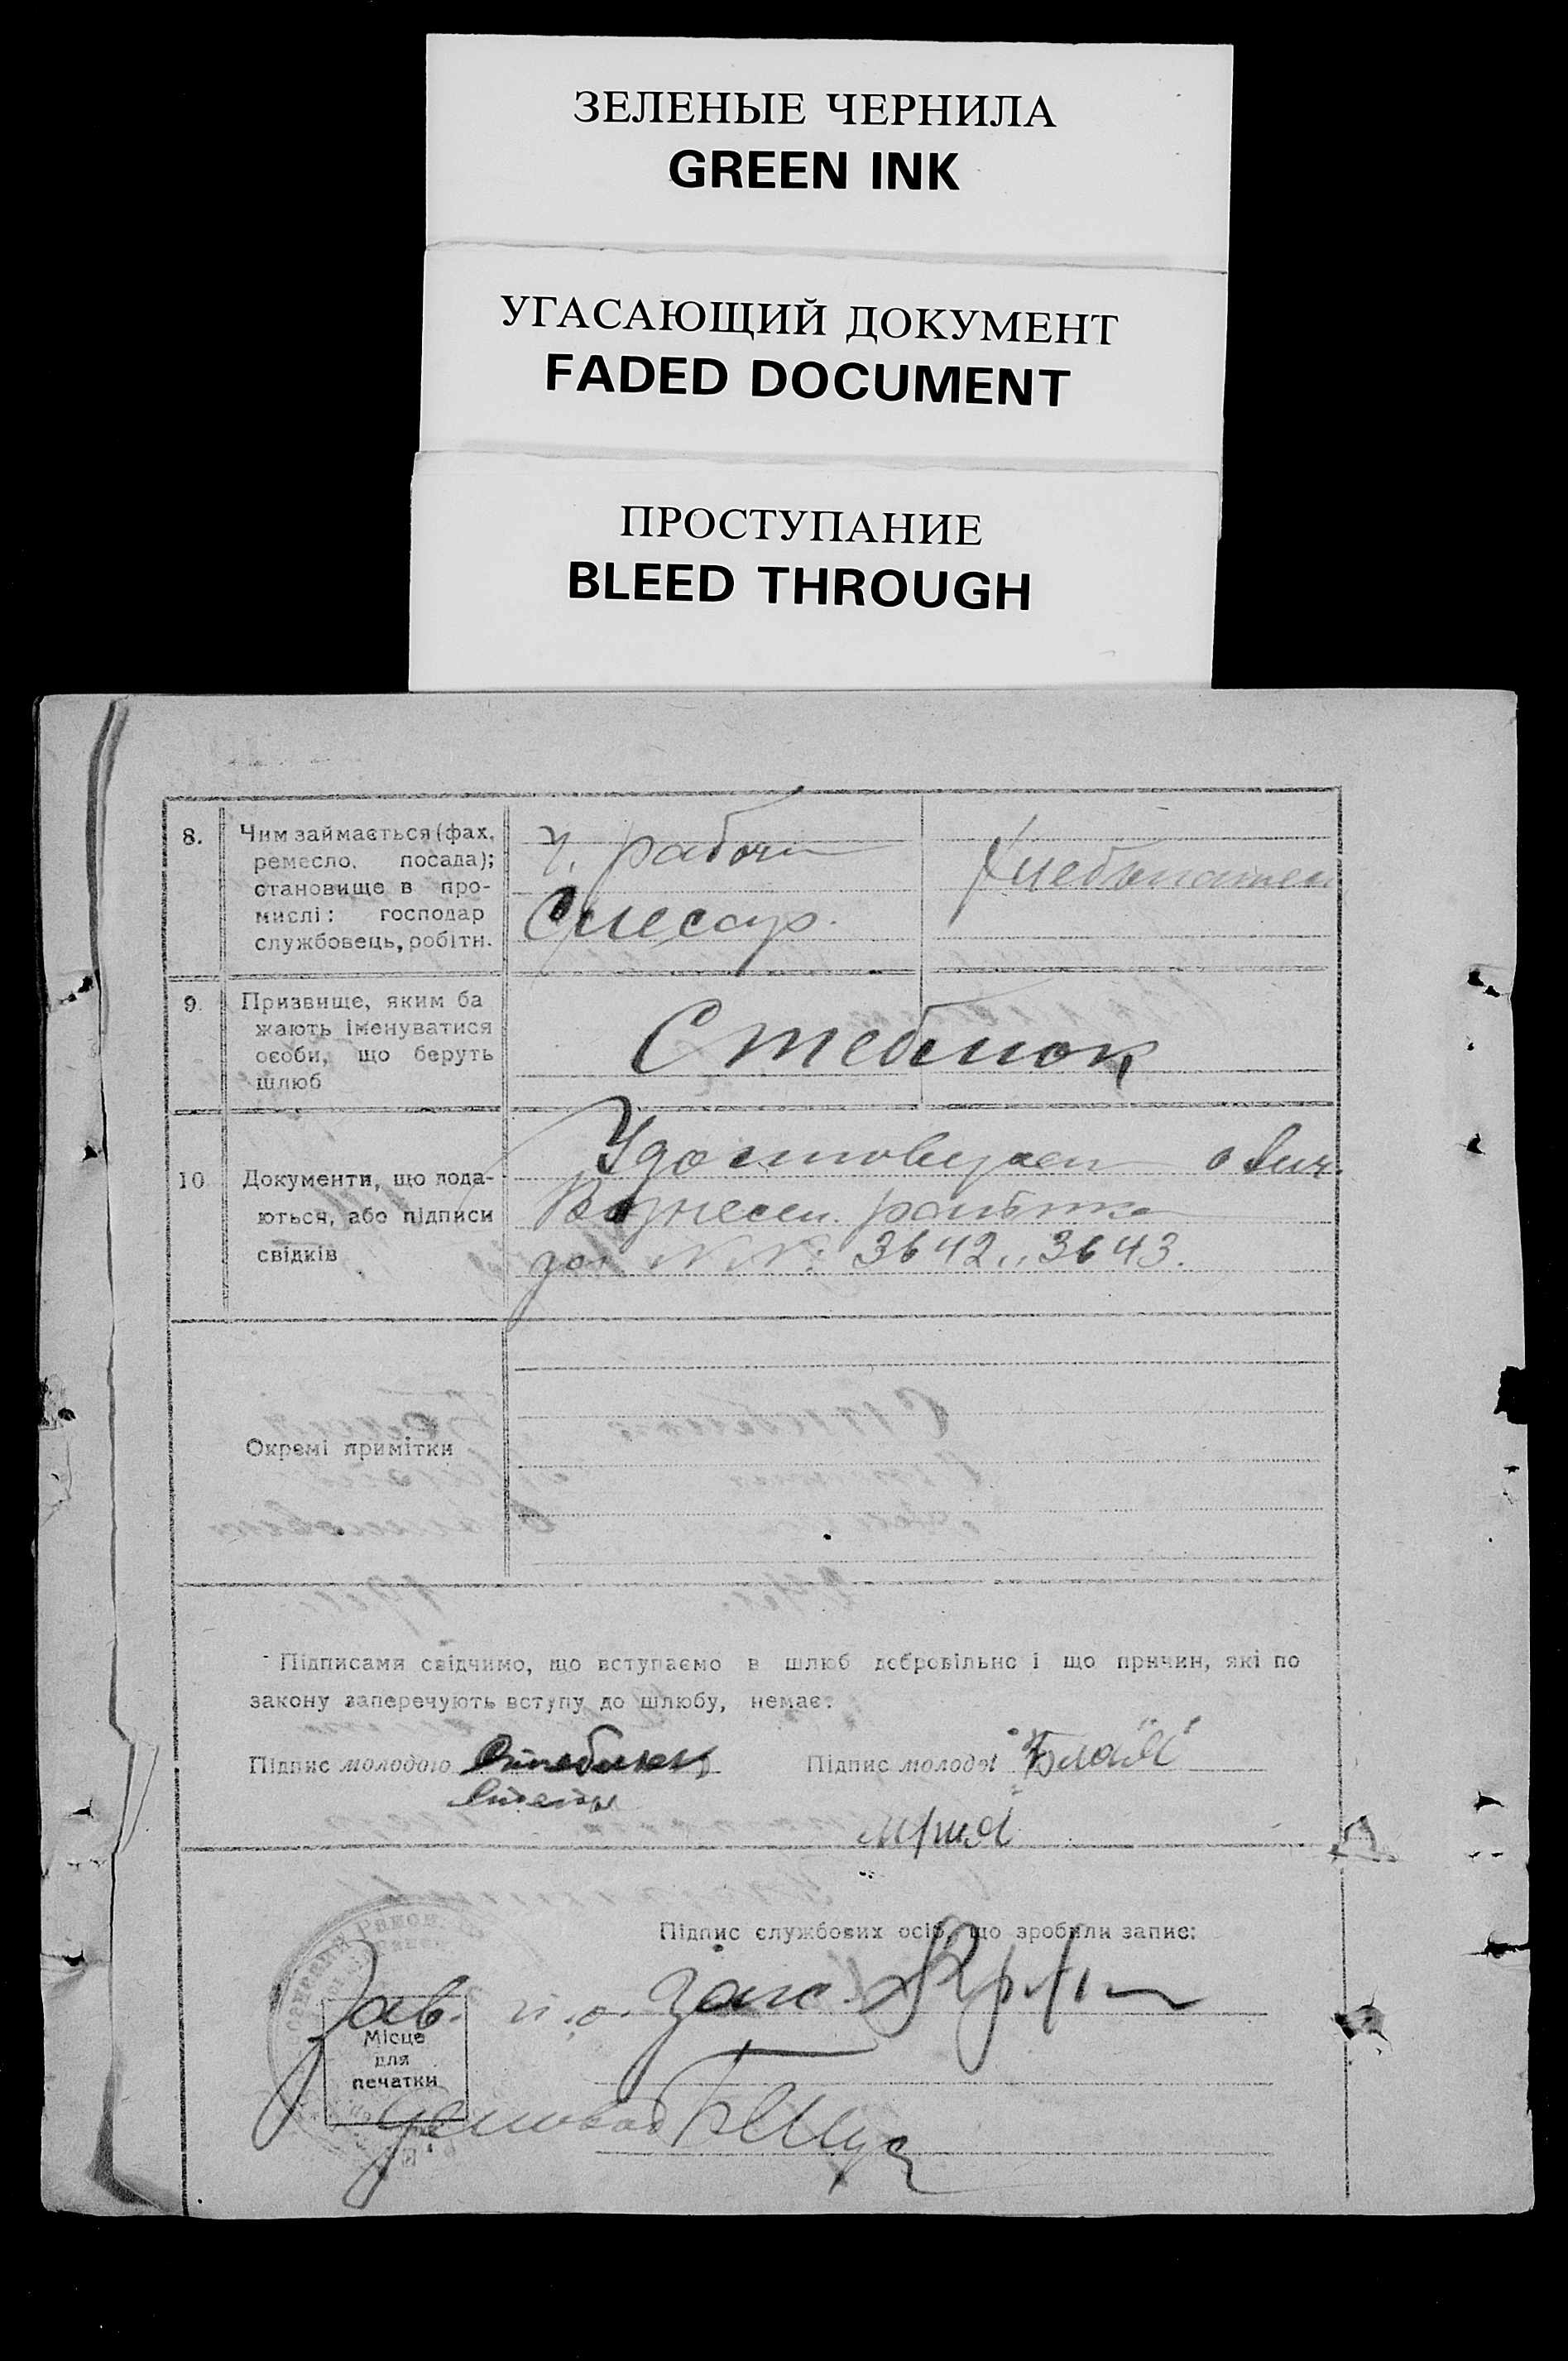 ЗЕЛЕНЫЕ ЧЕРНИЛА
GREEN INK
УГАСАЮЩИЙ ДОКУМЕНТ
FADED DOCUMENT
ПРОСТУПАНИЕ
BLEED THROUGH
8.
Чим займається (фах,
ремесло, посада);
становище в про-
мислі: господар
службовець, робітн.
Ч. рабочи
Слесар.
Хлебопашец
9.
Призвище, яким ба
жають іменуватися
особи, що беруть
шлюб
Стеблюк
10
Документи, що пода-
ються, або підписи
свідків
Удостоверен о лич.
Вознесен.
за NN: 3642,, 3643.
Окремі примітки
Підписами свідчимо, що вступаємо в шлюб добровільно і що причин, які по
закону заперечують вступу до шлюбу, немає:
Підпис молодого Стеблюк
Підпис молодої
Підпис службових осіб, що зробили запис:
Зав. п.о. Загс.
Місце
для
печатки